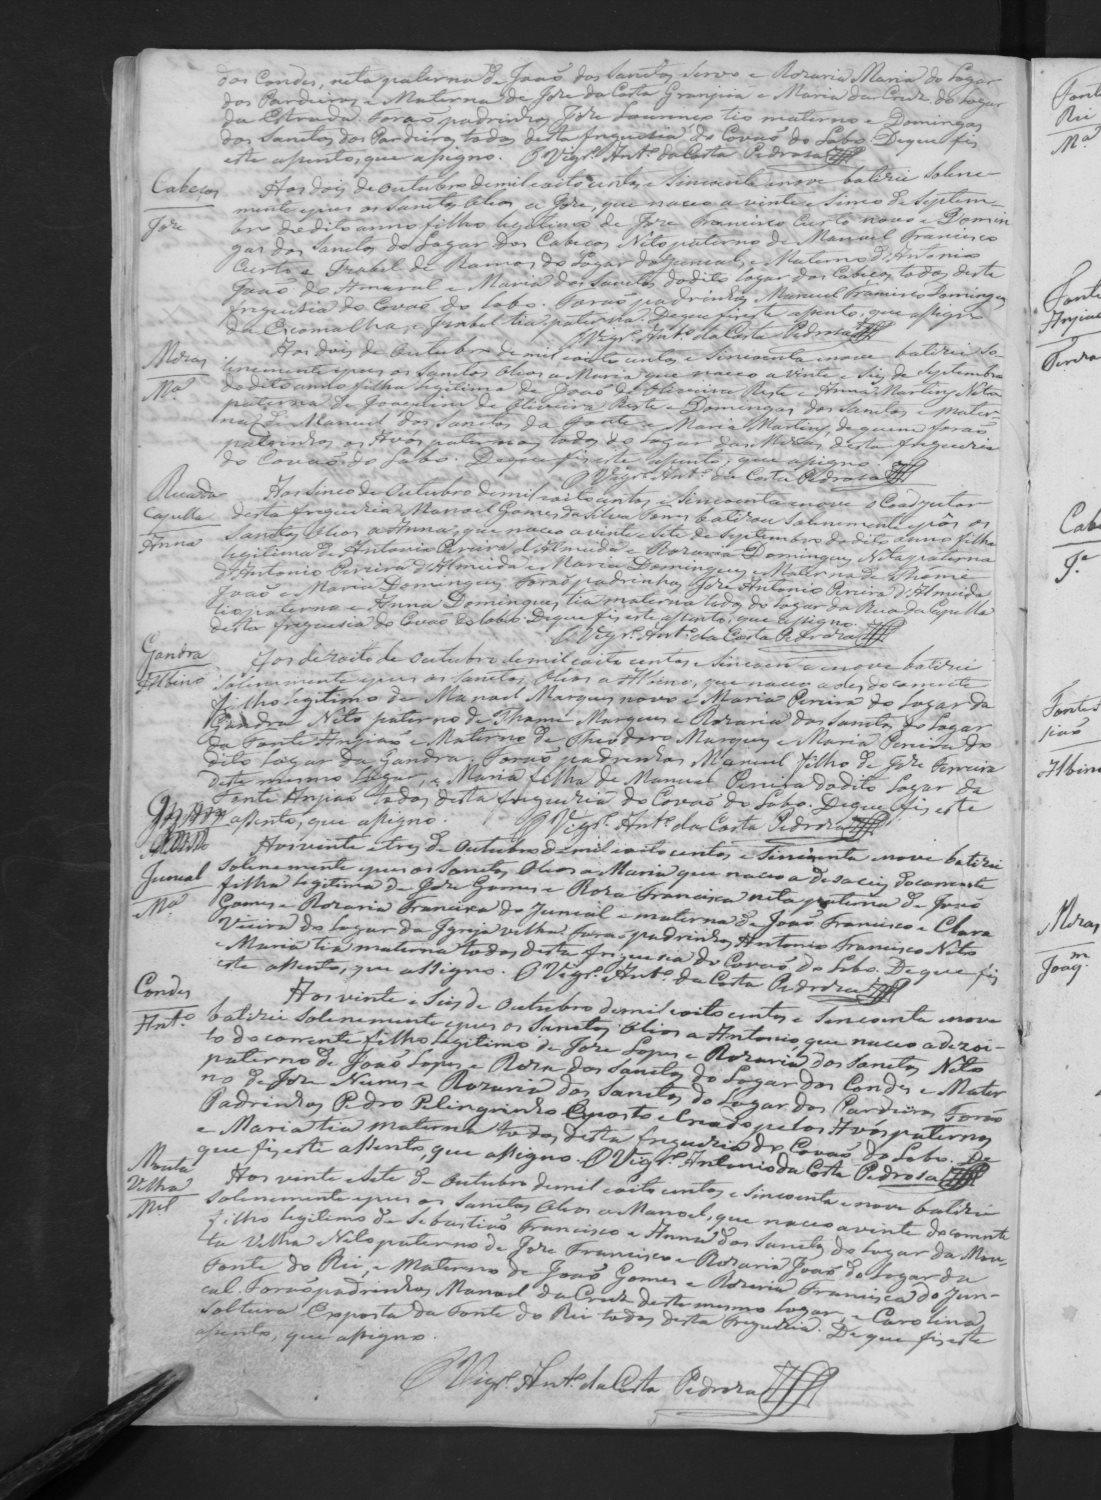 dos Condes, neta paterna de João dos Santos Servo e Rozaria Maria do Lugar
dos Pardieiros e Materna de Joze da Costa Granjeia e Maria da Cruz do Lugar
da Estrada. Forão padrinhos Joze Lourenço tio materno e Domingas
dos Santos dos Pardieiros todos desta freguesia do Covaõ do Lobo. De que fis
este aSento, que aSigno. O Vigr.º Ant.º da Costa Pedroza
Cabeços
Joze
Aos dois de Outubro de mil oito centos e Sincoenta e nove batizei Solene-
mente e pus os Santos Olios a Joze, que naceo a vinte e Sinco de Septem-
bro do dito anno filho legitimo de Joze Francisco Curto novo e Domin
gas dos Santos do Lugar dos Cabeços Neto paterno de Manuel Francisco
Curto e Izabel de Ramos do Lugar do Juncal, e Materno d'Antonio
João do Amaral e Maria dos Santos do dito Lugar dos Cabeços todos desta
freguesia do Covaõ do Lobo. Foraõ padrinhos Manuel Francisco Domingues
da Escomalha, e Izabel tia paterna. De que fis este aSento, que aSigno
O Vigr.º Ant.º da Costa Pedroza
Mezas
M.ª
Aos dois de Outubro de mil oito centos e Sincoenta e nove batizei So-
lenemente e pus os Santos Olios a Maria que naceo a vinte e Seis de Septembro
do dito anno filha legitima de João de Oliveira Reste e Anna Martins Neta
paterna de Joaquim de Oliveira Reste e Domingas dos Santos e mater-
na de Manuel dos Santos da Fonte e Maria Martins, de quem foraõ
padrinhos os Avós paternos todos do Lugar das Mezas desta freguezia
do Covaõ do Lobo. De que fis este aSento, que aSigno
O Vigr.º Ant.º da Costa Pedroza
Rua da
Capella
Anna
Aos Sinco de Outubro de mil oito centos e Sincoenta e nove o Coadjutor
desta freguezia Manoel Gomes da Silva Tomé batizou Solenemente e pôs os
Santos Olios a Anna, que naceo a vinte e Sete de Septembro do dito anno filha
legitima de Antonio Pereira d'Almeida e Rozaria Domingues, Neta paterna
d'Antonio Pereira d'Almeida e Maria Domingues, e Materna de Thome
João e Maria Domingues. Foraõ padrinhos Joze Antonio Pereira d'Almeida
tio paterno e Anna Domingues, tia materna todos do Lugar da Rua da Capella
desta freguesia do Covaõ do Lobo. De que fis este aSento, que aSigno.
O Vigr.º Ant.º da Costa Pedroza
Gandra
Albino
Aos dezoito de Outubro de mil oito centos e Sincoenta e nove batizei
Solenemente e pus os Santos Olios a Albino, que naceo a des do corrente
filho legitimo de Manoel Marques novo e Maria Pereira do Lugar da
Gandra Neto paterno de Thome Marques e Rozaria dos Santos do Lugar
da Fonte Anjiaõ e Materno de Theodoro Marques e Maria Pereira do
dito Lugar da Gandra. Foraõ padrinhos Manuel filho de Joze Ferreira
deste mesmo Lugar, e Maria filha de Manuel Pereira do dito Lugar da
Fonte Anjiaõ todos desta freguezia do Covaõ do Lobo. De que fis este
aSento, que aSigno. O Vigr.º Ant.º da Costa Pedroza
Juncal
M.ª
Aos vinte e tres de Outubro de mil oito centos e Sincoenta e nove batizei
Solenemente e pus os Santos Olios a Maria que naceo a dezaceis do corrente
filha legitima de Joze Gomes e Roza Francisca neta paterna de João
Gomes e Rozaria Francisca do Juncal e materna de João Francisco e Clara
Vieira do Lugar da Igreja velha. Foraõ padrinhos Antonio Francisco Neto
e Maria tia materna todos desta freguesia do Covaõ do Lobo. De que fis
este aSento, que aSigno. O Vigr.º Ant.º da Costa Pedroza
Condes
Ant.º
Aos vinte e Seis de Outubro de mil oito centos e Sincoenta e nove
batizei Solenemente e pus os Santos Olios a Antonio, que naceo a dezoi-
to do corrente filho legitimo de Joze Lopes e Rozaria dos Santos Neto
paterno de João Lopes e Roza dos Santos do Lugar dos Condes e Mater
no de Joze Nunes e Rozaria dos Santos do Lugar dos Pardieiros. Foraõ
Padrinhos Pedro Pelingrinho Exposto e Creado pelos Avós paternos
e Maria tia materna todos desta freguezia do Covaõ do Lobo. De
que fis este aSento, que aSigno. O Vigr.º Antonio da Costa Pedroza
Mouta
Velha
M.el
Aos vinte e Sete de Outubro de mil oito centos e Sincoenta e nove batizei
Solenemente e pus os Santos Olios a Manoel, que naceo a vinte do corrente
filho legitimo de Sebastiaõ Francisco e Anna dos Santos do Lugar da Mou-
ta Velha Neto paterno de Joze Francisco e Rozaria João do Lugar da
Fonte do Rei, e Materno de João Gomes e Rozaria Francisca do Jun-
cal. Foraõ padrinhos Manoel da Cruz deste mesmo Lugar, e Carolina
Solteira Exposta da Fonte do Rei todos desta Freguezia. De que fis este
aSento, que aSigno.
O Vigr.º Ant.º da Costa Pedroza
Fonte
Rei
M.ª
Fonte
Anjiaõ
Cabe
J.e
Fonte
Albino
Mezas
Joaq.m